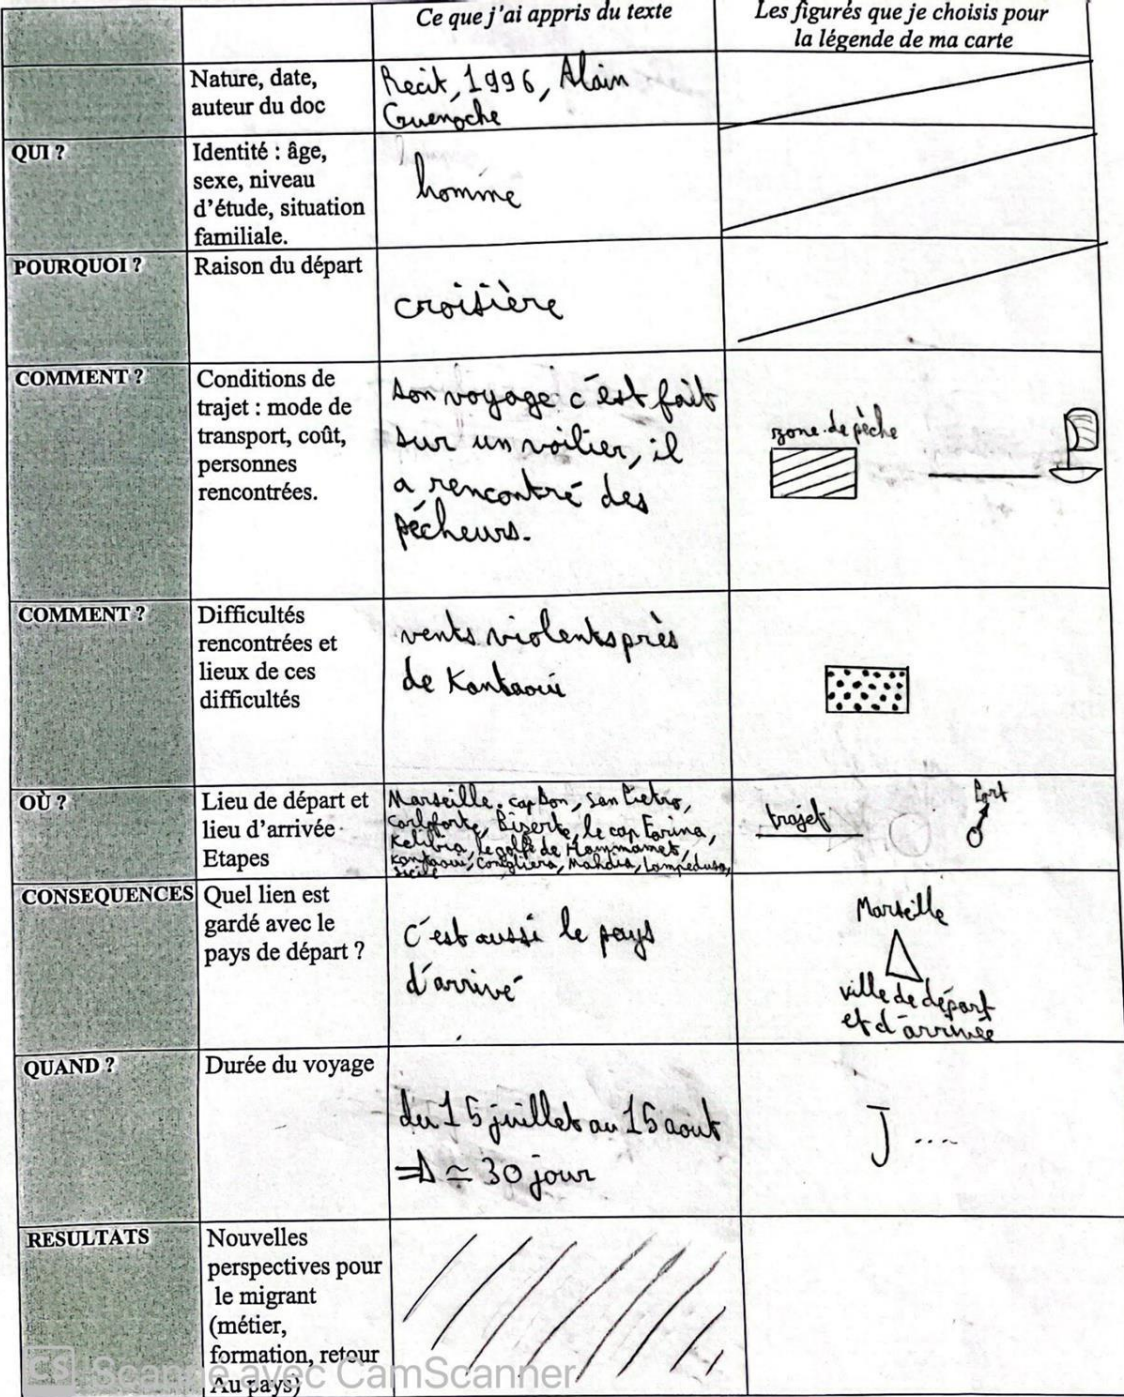 Ce que j'ai appris du texte
Les figurés que je choisis pour
la légende de ma carte
Nature, date,
auteur du doc
Recit, 1996, Alain
Guenoche
QUI ?
Identité : âge,
sexe, niveau
d'étude, situation
familiale.
homme
POURQUOI ?
Raison du départ
croisière
COMMENT ?
Conditions de
trajet : mode de
transport, coût,
personnes
rencontrées.
son voyage c'est fait
sur un voilier, il
a rencontré des
pécheurs.
zone de pèche
COMMENT ?
Difficultés
rencontrées et
lieux de ces
difficultés
vents violents près
de Kantaoui
OÙ ?
Lieu de départ et
lieu d'arrivée
Etapes
Marseille, cap bon, San Pietro,
Carloforte, Bizerte, le cap Farina,
Kelibia, le golfe de Hammamet,
Kantaoui, Conigliera, Mahdia, Lampedusa,
Sicile
trajet
Port
CONSEQUENCES
Quel lien est
gardé avec le
pays de départ ?
C'est aussi le pays
d'arrivé
Marseille
ville de départ
et d'arrivée
QUAND ?
Durée du voyage
du 15 juillet au 15 aout
⇒ ≃ 30 jour
J ....
RESULTATS
Nouvelles
perspectives pour
le migrant
(métier,
formation, retour
Au pays)
CS Scanné avec CamScanner